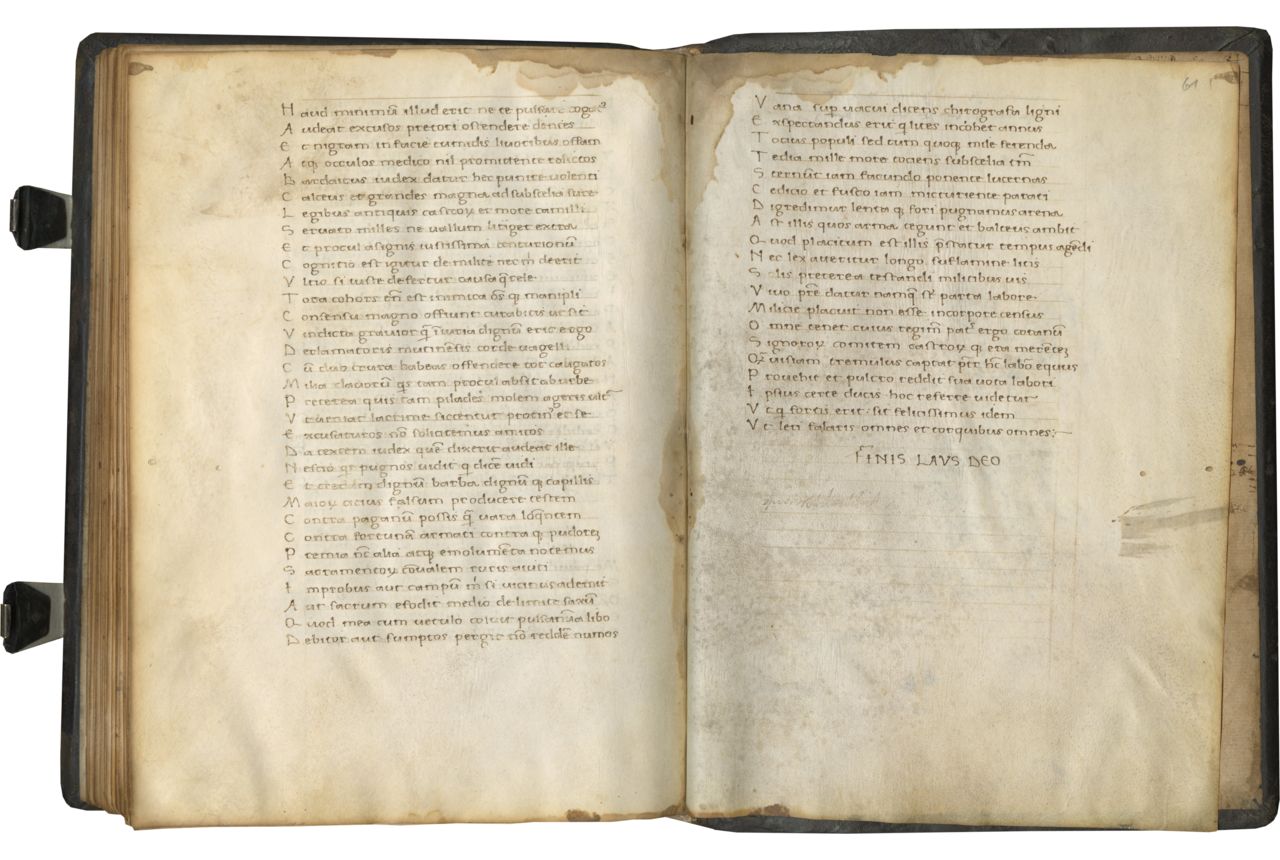 Haud minimū illud erit ne te pulsare togat᷒
Audeat excusos pretori ostendere dentes
Et nigram in facie tumidis liuoribus offam
Atq; occulos medico nil promittente relictos
Bardaicus iudex datur hec punire uolenti
Calceus et grandes magna ad subselia sure
Legibus antiquis castroꝝ et more camilli
Seruato milles ne uallum litiget extra
Et procul asignis iustissima centurionū
Cognitio est igitur de milite nec m̄ deerit
Vltio si iuste defertur causa q̄rele
Tota cohors tn̄ est inimica ōs q; manipli
Consensu magno offitiunt curabitis ut sit
Vindicta grauior q̄ iniuria dignū erit ergo
Declamatoris mutinēsis corde uagelli
Cū duo crura habeas offendere tot caligatos
Milia clauorū qs tam procul absit ab urbe
Preterea quis tam pilades molem ageris ult̄
Vt ueniat lacrime siccentur protin᷒ et se
Excusaturos nō solicitemus amicos
Da testem iudex quē dixerit audeat ille
Nescio qs pugnos uidit q dicē uidi
Et credam dignū barba dignū q; capillis
Maioꝝ citius falsum producere testem
Contra paganū possis q̄ uara loq̄ntem
Contra fortunā armati contra q; pudorē
Premia nc̄ alia atq; emolumēta notemus
Sacramentoꝝ
Improbus aut campū m̄ si uicinus ademit
Aut sacrum efodit medio de limite saxū
Quod mea cum uetulo coluit puls annua libo
Debitor aut sumptos pergit nō reddē numos
61
Vana sup uacui dicens chirografa ligni
Exspectandus erit q lites incohet annus
Totius populi sed tum quoq; mile ferenda
Tedia mille more tociens subselia tm̄
Sternūt iam facundo ponente lucernas
Cedicio et fusco iam micturiente parati
Digredimur lenta q; fori pugnamus arena
Ast illis quos arma tegunt et balteus ambit
Quod placitum est illis p̄statur tempus agēdi
Nec lex atteritur longo suflamine litis
Solis preterea testandi militibus uis
Viuo pr̄e datur namq; que parta labore
Milicie placuit non esse incorpore census
Omne tenet cuius regim̄ pat᷒ ergo coranū
Signoroꝝ comitem castroꝝ q; era merētē
Quīsuam tremulus captat pr̄ hc̄ labo equus
Prouehit et pulcro reddit sua uota labori
Ipsius certe ducis hoc referre uidetur
Vt q; fortis erit sit felicissimus idem
Vt leti falaris omnes et torquibus omnes
FINIS LAVS DEO